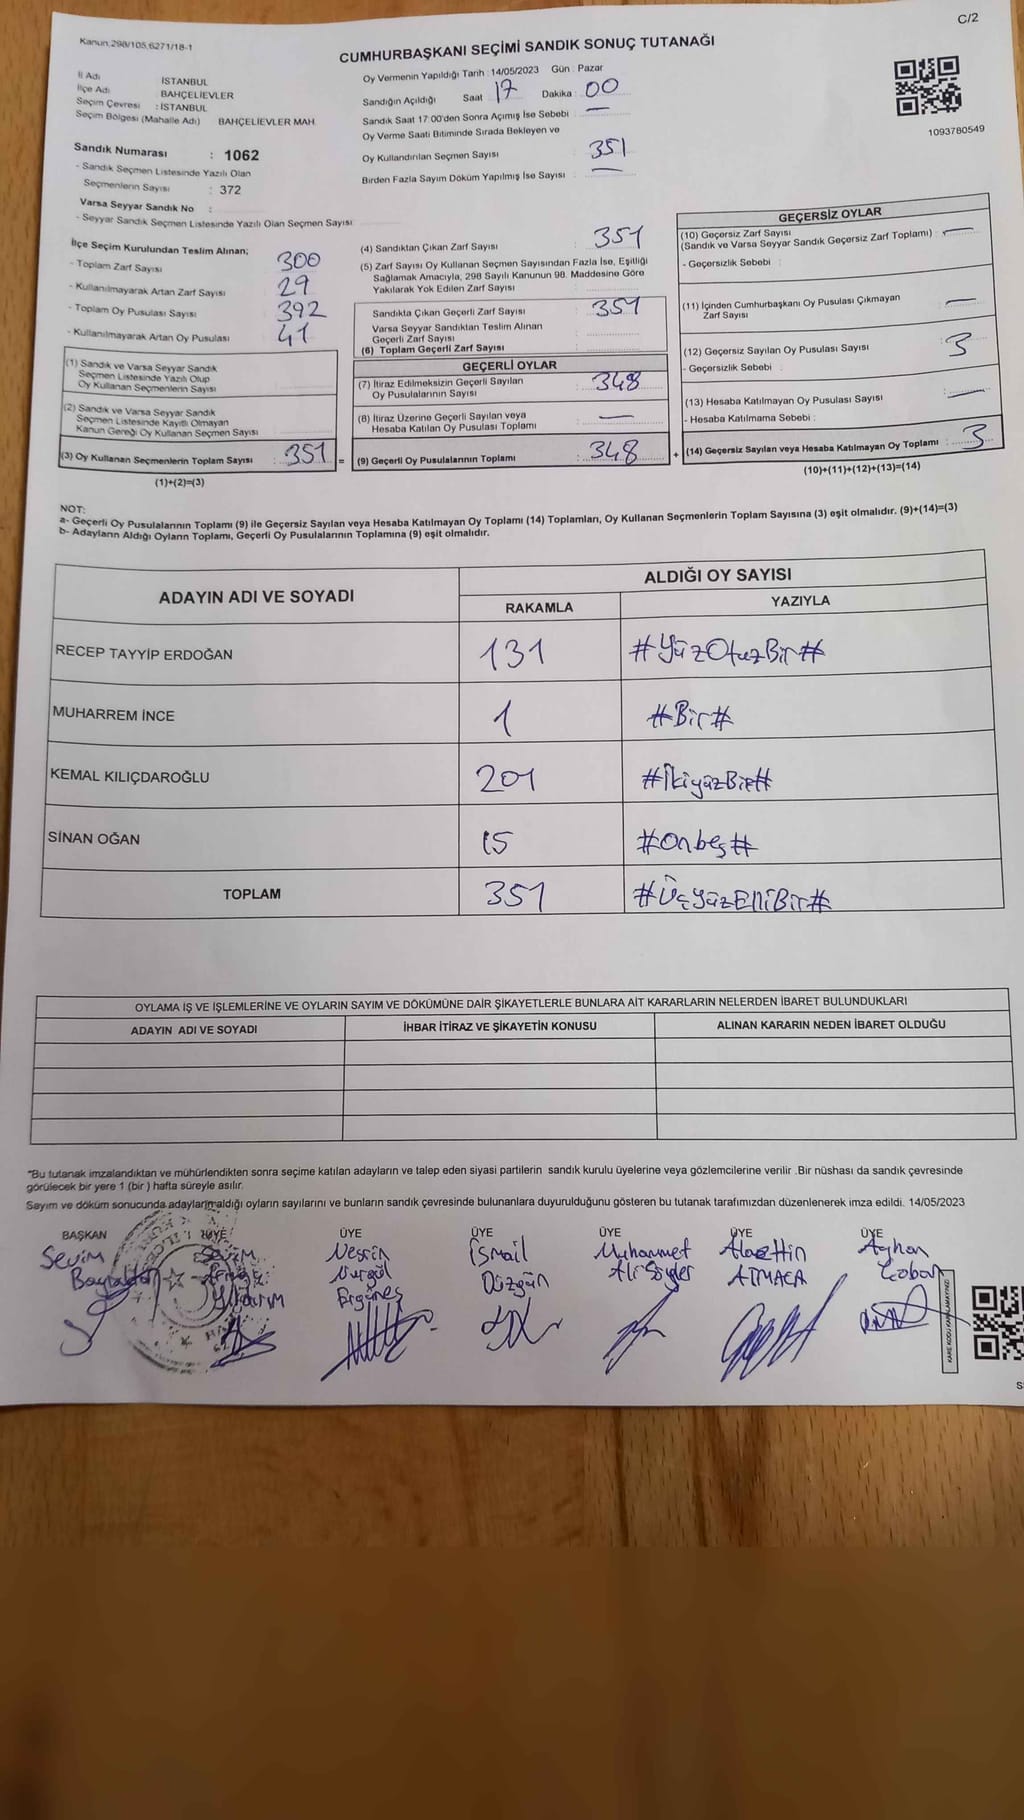 C/2
Kanun.298/105,6271/18-1
CUMHURBAŞKANI SEÇİMİ SANDIK SONUÇ TUTANAĞI
İl Adı İSTANBUL
İlçe Adı BAHÇELİEVLER
Seçim Çevresi : İSTANBUL
Seçim Bölgesi (Mahalle Adı) BAHÇELİEVLER MAH.
Sandık Numarası : 1062
- Sandık Seçmen Listesinde Yazılı Olan
Seçmenlerin Sayısı : 372
Varsa Seyyar Sandık No :
- Seyyar Sandık Seçmen Listesinde Yazılı Olan Seçmen Sayısı
Oy Vermenin Yapıldığı Tarih : 14/05/2023 Gün : Pazar
Sandığın Açıldığı Saat 17 Dakika : 00
Sandık Saat 17:00'den Sonra Açımış İse Sebebi : —
Oy Verme Saati Bitiminde Sırada Bekleyen ve
Oy Kullandırılan Seçmen Sayısı 351
Birden Fazla Sayım Döküm Yapılmış İse Sayısı —
1093780549
İlçe Seçim Kurulundan Teslim Alınan;
- Toplam Zarf Sayısı 300
- Kullanılmayarak Artan Zarf Sayısı 29
- Toplam Oy Pusulası Sayısı 392
- Kullanılmayarak Artan Oy Pusulası 41
(1) Sandık ve Varsa Seyyar Sandık
Seçmen Listesinde Yazılı Olup
Oy Kullanan Seçmenlerin Sayısı
(2) Sandık ve Varsa Seyyar Sandık
Seçmen Listesinde Kayıtlı Olmayan
Kanun Gereği Oy Kullanan Seçmen Sayısı
(3) Oy Kullanan Seçmenlerin Toplam Sayısı : 351 =
(1)+(2)=(3)
(4) Sandıktan Çıkan Zarf Sayısı : 351
(5) Zarf Sayısı Oy Kullanan Seçmen Sayısından Fazla İse, Eşitliği
Sağlamak Amacıyla, 298 Sayılı Kanunun 98. Maddesine Göre
Yakılarak Yok Edilen Zarf Sayısı
Sandıkta Çıkan Geçerli Zarf Sayısı : 351
Varsa Seyyar Sandıktan Teslim Alınan
Geçerli Zarf Sayısı
(6) Toplam Geçerli Zarf Sayısı
GEÇERLİ OYLAR
(7) İtiraz Edilmeksizin Geçerli Sayılan
Oy Pusulalarının Sayısı : 348
(8) İtiraz Üzerine Geçerli Sayılan veya
Hesaba Katılan Oy Pusulası Toplamı : —
(9) Geçerli Oy Pusulalarının Toplamı : 348 +
GEÇERSİZ OYLAR
(10) Geçersiz Zarf Sayısı
(Sandık ve Varsa Seyyar Sandık Geçersiz Zarf Toplamı) : —
- Geçersizlik Sebebi :
(11) İçinden Cumhurbaşkanı Oy Pusulası Çıkmayan
Zarf Sayısı : —
(12) Geçersiz Sayılan Oy Pusulası Sayısı : 3
- Geçersizlik Sebebi :
(13) Hesaba Katılmayan Oy Pusulası Sayısı : —
- Hesaba Katılmama Sebebi :
(14) Geçersiz Sayılan veya Hesaba Katılmayan Oy Toplamı : 3
(10)+(11)+(12)+(13)=(14)
NOT:
a- Geçerli Oy Pusulalarının Toplamı (9) ile Geçersiz Sayılan veya Hesaba Katılmayan Oy Toplamı (14) Toplamları, Oy Kullanan Seçmenlerin Toplam Sayısına (3) eşit olmalıdır. (9)+(14)=(3)
b- Adayların Aldığı Oyların Toplamı, Geçerli Oy Pusulalarının Toplamına (9) eşit olmalıdır.
ADAYIN ADI VE SOYADI ALDIĞI OY SAYISI
RAKAMLA YAZIYLA
RECEP TAYYİP ERDOĞAN 131 #YüzOtuzBir#
MUHARREM İNCE 1 #Bir#
KEMAL KILIÇDAROĞLU 201 #İkiyüzBir#
SİNAN OĞAN 15 #Onbeş#
TOPLAM 351 #ÜçyüzElliBir#
OYLAMA İŞ VE İŞLEMLERİNE VE OYLARIN SAYIM VE DÖKÜMÜNE DAİR ŞİKAYETLERLE BUNLARA AİT KARARLARIN NELERDEN İBARET BULUNDUKLARI
ADAYIN ADI VE SOYADI İHBAR İTİRAZ VE ŞİKAYETİN KONUSU ALINAN KARARIN NEDEN İBARET OLDUĞU
"Bu tutanak imzalandıktan ve mühürlendikten sonra seçime katılan adayların ve talep eden siyasi partilerin sandık kurulu üyelerine veya gözlemcilerine verilir .Bir nüshası da sandık çevresinde
görülecek bir yere 1 (bir ) hafta süreyle asılır.
Sayım ve döküm sonucunda adayların aldığı oyların sayılarını ve bunların sandık çevresinde bulunanlara duyurulduğunu gösteren bu tutanak tarafımızdan düzenlenerek imza edildi. 14/05/2023
BAŞKAN ÜYE ÜYE ÜYE ÜYE ÜYE ÜYE
Sevim Sevim Nesrin İsmail Muhammet Alaettin Ayhan
Bayraktar Yıldırım Nurgül Düzgün Ali Söyler ATMACA Çoban
Ergüneş
KARE KODU KAPLAMAYINIZ!